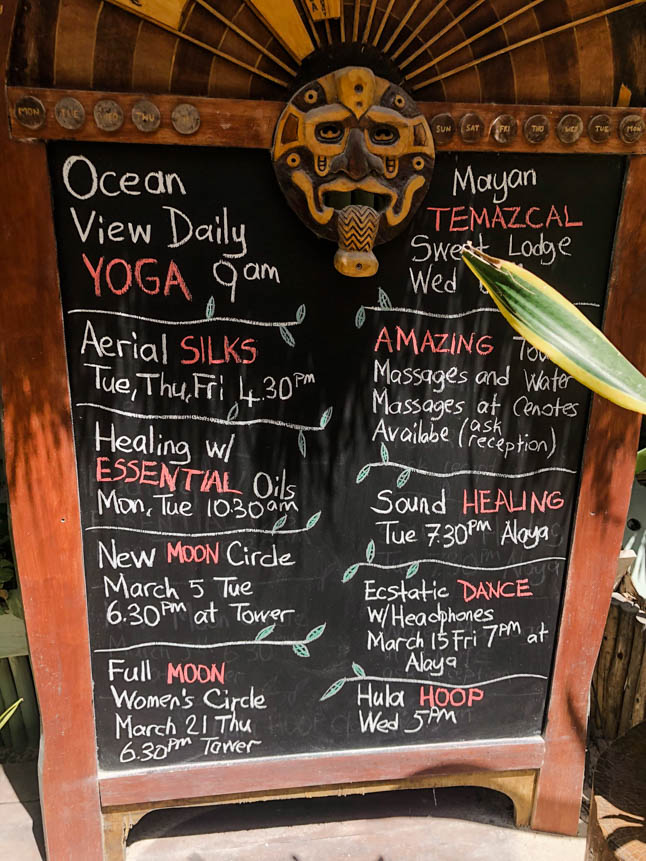 MON TUE WED THU FRI
SUN SAT FRI THU WED TUE MON
Ocean
View Daily
YOGA 9am
Aerial SILKS
Tue, Thu, Fri 4.30pm
Healing w/
ESSENTIAL Oils
Mon, Tue 10.30am
New MOON Circle
March 5 Tue
6.30pm at Tower
Full MOON
Women's Circle
March 21 Thu
6.30pm Tower
Mayan
TEMAZCAL
Sweat Lodge
Wed
AMAZING
Massages and Water
Massages at Cenotes
Availabe (ask
reception)
Sound HEALING
Tue 7.30pm Alaya
Ecstatic DANCE
W/Headphones
March 15 Fri 7pm at
Alaya
Hula HOOP
Wed 5pm